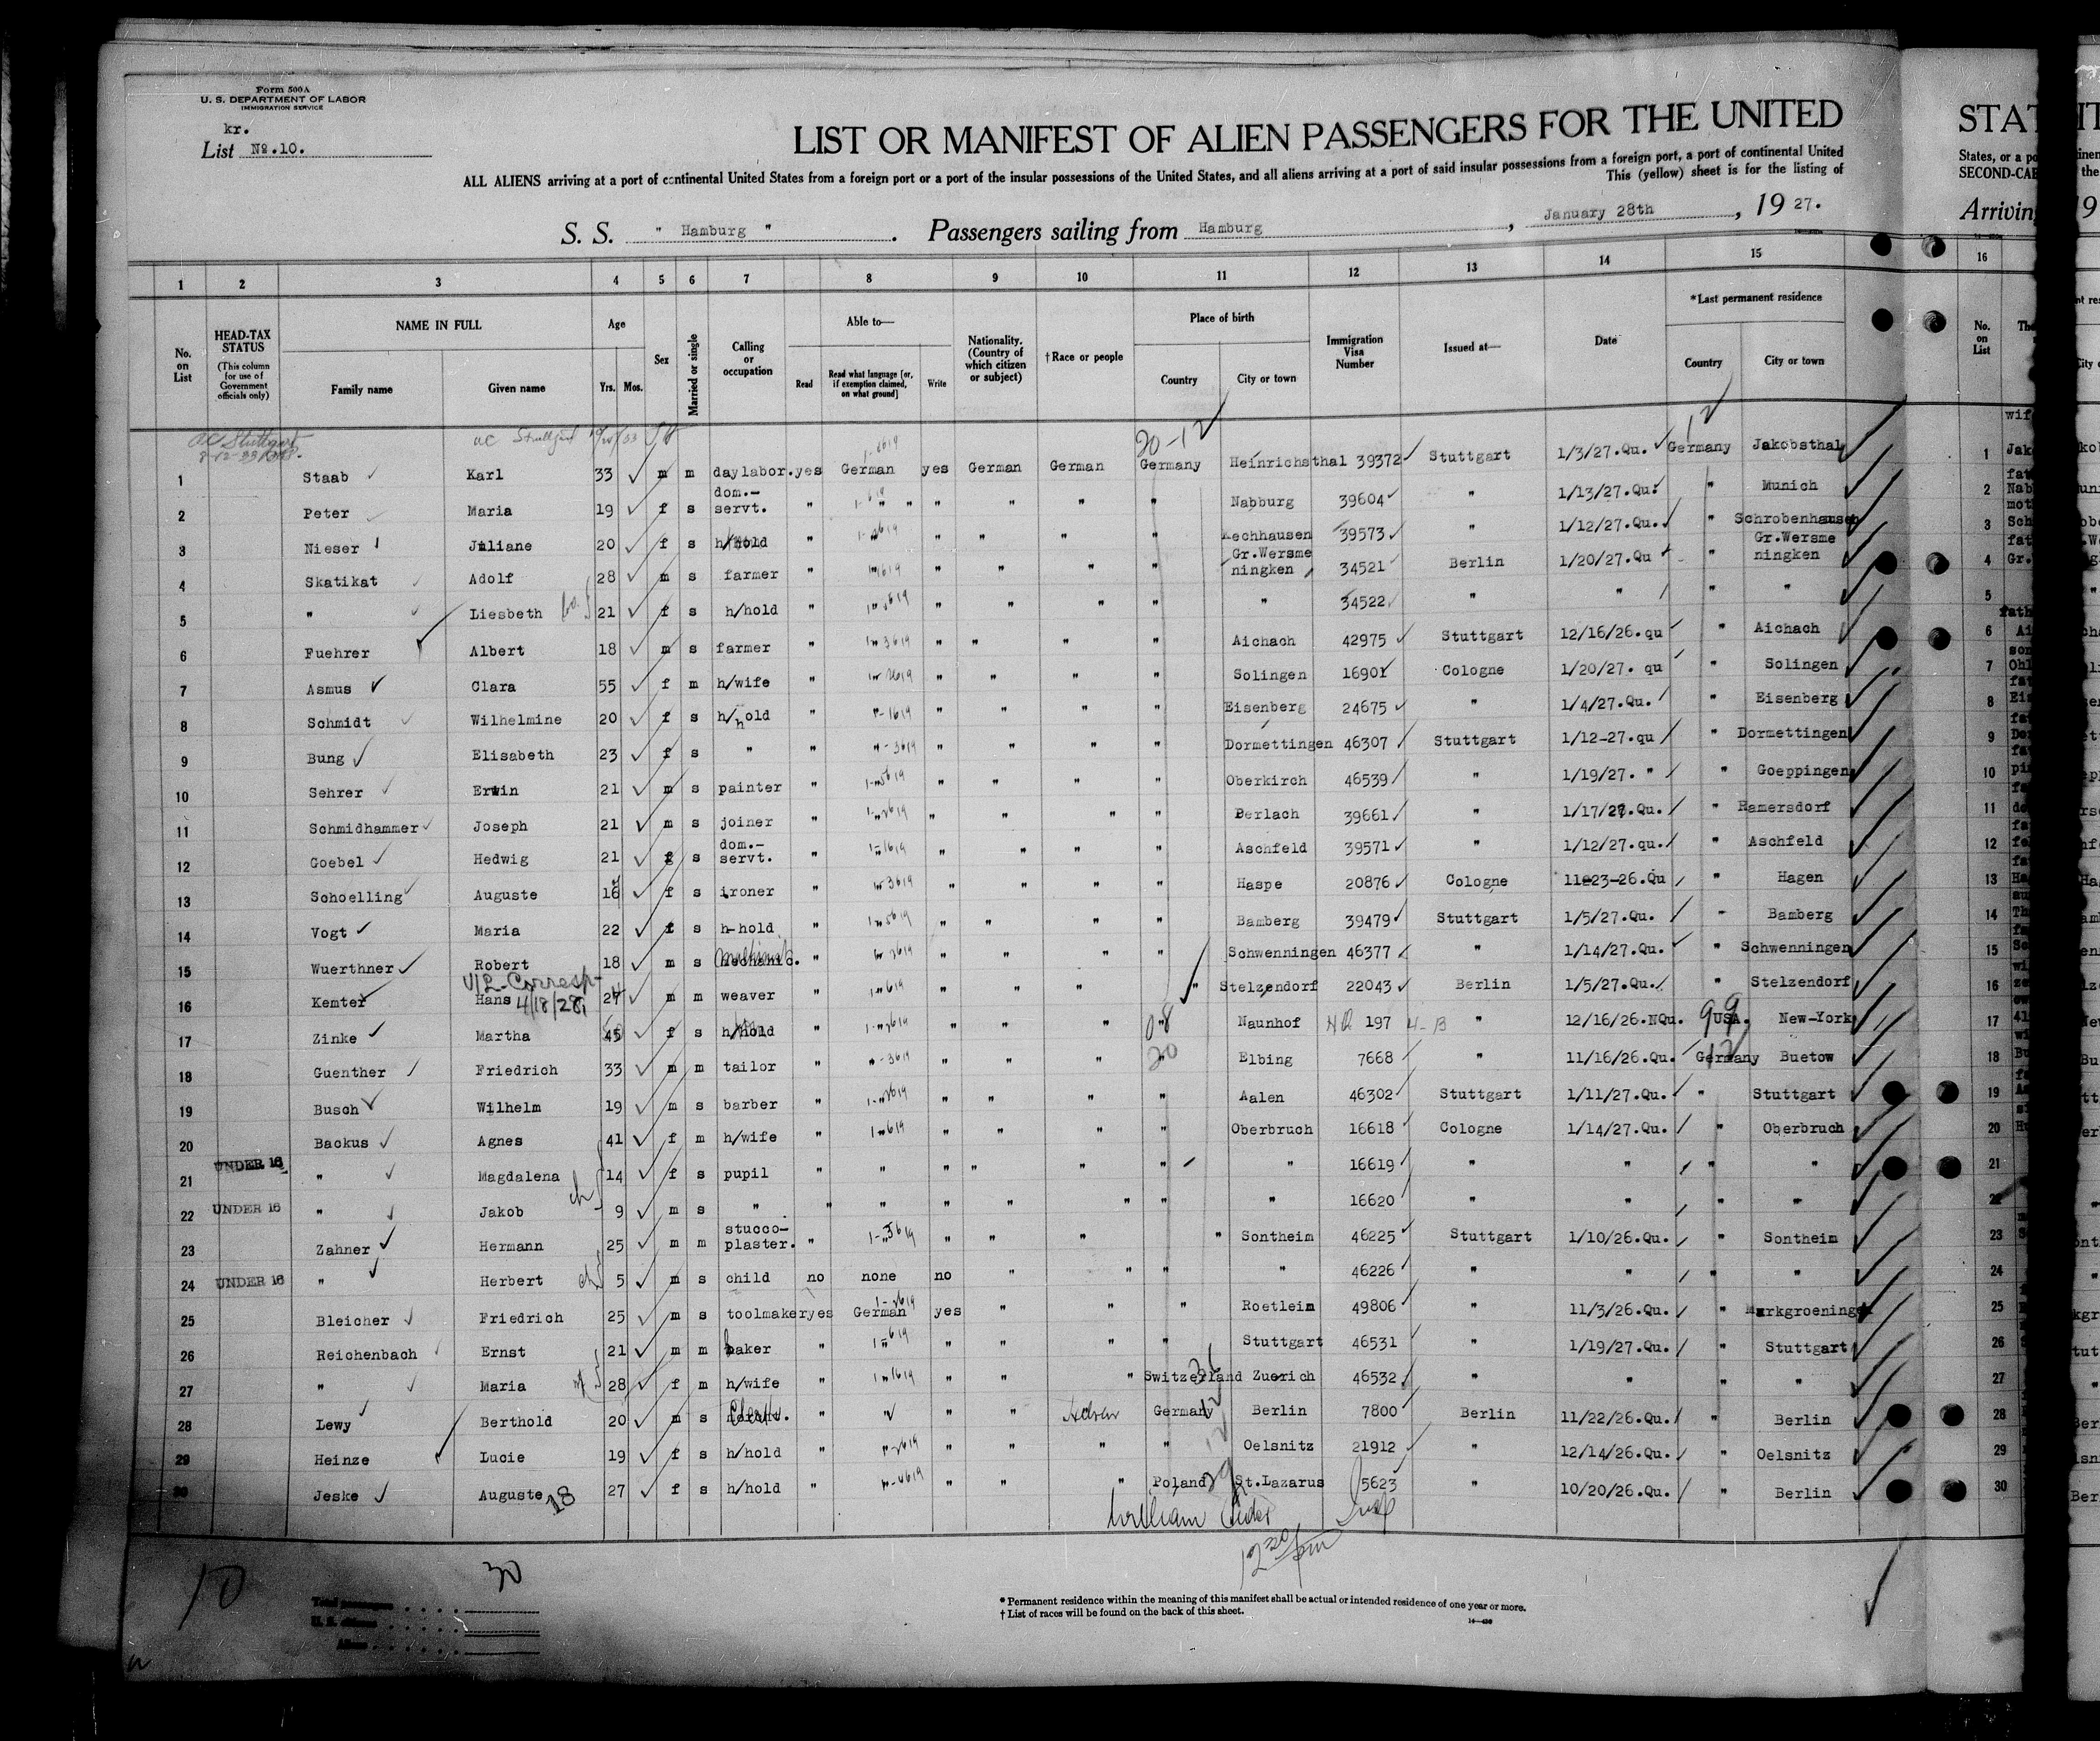 Form 500A
U. S. DEPARTMENT OF LABOR
IMMIGRATION SERVICE
kr.
List No.10.
LIST OR MANIFEST OF ALIEN PASSENGERS FOR THE UNITED
ALL ALIENS arriving at a port of continental United States from a foreign port or a port of the insular possessions of the United States, and all aliens arriving at a port of said insular possessions from a foreign port, a port of continental United
This (yellow) sheet is for the listing of
S. S. " Hamburg " . Passengers sailing from Hamburg , January 28th , 19 27.
STAT
States, or a po
SECOND-CAB
Arriving
1 2 3 4 5 6 7 8 9 10 11 12 13 14 15 16
No. on List
HEAD-TAX STATUS (This column for use of Government officials only)
NAME IN FULL
Family name Given name
Age
Yrs. Mos.
Sex
Married or single
Calling or occupation
Able to—
Read Read what language [or, if exemption claimed, on what ground] Write
Nationality. (Country of which citizen or subject)
†Race or people
Place of birth
Country City or town
Immigration Visa Number
Issued at—
Date
*Last permanent residence
Country City or town
No. on List
ac Stuttgart
20-12 12
1 Staab Karl 33 m m daylabor. yes German yes German German Germany Heinrichsthal 39372 Stuttgart 1/3/27.Qu. Germany Jakobsthal 1
2 Peter Maria 19 f s dom.-servt. " " " " " " Nabburg 39604 " 1/13/27.Qu. " Munich 2
3 Nieser Juliane 20 f s h/hold " " " " " " 39573 " 1/12/27.Qu. " Schrobenhausen 3
4 Skatikat Adolf 28 m s farmer " " " " " " Gr.Wersmeningken 34521 Berlin 1/20/27.Qu " Gr.Wersmeningken 4
5 " Liesbeth 21 f s h/hold " " " " " " " 34522 " " " " 5
6 Fuehrer Albert 18 m s farmer " " " " " " Aichach 42975 Stuttgart 12/16/26.qu " Aichach 6
7 Asmus Clara 55 f m h/wife " " " " " " Solingen 16901 Cologne 1/20/27. qu " Solingen 7
8 Schmidt Wilhelmine 20 f s h/hold " " " " " " Eisenberg 24675 " 1/4/27.Qu. " Eisenberg 8
9 Bung Elisabeth 23 f s " " " " " " " Dormettingen 46307 Stuttgart 1/12-27.qu " Dormettingen 9
10 Sehrer Erwin 21 m s painter " " " " " " Oberkirch 46539 " 1/19/27. " " Goeppingen 10
11 Schmidhammer Joseph 21 m s joiner " " " " " " Berlach 39661 " 1/17/27.Qu. " Hamersdorf 11
12 Goebel Hedwig 21 f s dom.-servt. " " " " " " Aschfeld 39571 " 1/12/27.qu. " Aschfeld 12
13 Schoelling Auguste 16 f s ironer " " " " " " Haspe 20876 Cologne 11-23-26.Qu " Hagen 13
14 Vogt Maria 22 f s h-hold " " " " " " Bamberg 39479 Stuttgart 1/5/27.Qu. " Bamberg 14
15 Wuerthner Robert 18 m s mechanic. " " " " " " Schwenningen 46377 " 1/14/27.Qu. " Schwenningen 15
V/L Corresp- 4/18/28
16 Kemter Hans 27 m m weaver " " " " " " Stelzendorf 22043 Berlin 1/5/27.Qu. " Stelzendorf 16
17 Zinke Martha 45 f s h/hold " " " " " " Naunhof NQ 197 4-B " 12/16/26.NQu. 99 USA. New-York 17
18 Guenther Friedrich 33 m m tailor " " " " " " Elbing 7668 " 11/16/26.Qu. Germany Buetow 18
19 Busch Wilhelm 19 m s barber " " " " " " Aalen 46302 Stuttgart 1/11/27.Qu. " Stuttgart 19
20 Backus Agnes 41 f m h/wife " " " " " " Oberbruch 16618 Cologne 1/14/27.Qu. " Oberbruch 20
21 UNDER 16 " Magdalena 14 f s pupil " " " " " " " 16619 " " " " 21
22 UNDER 16 " Jakob 9 m s " " " " " " " " 16620 " " " " 22
23 Zahner Hermann 25 m m stucco-plaster. " " " " " " Sontheim 46225 Stuttgart 1/10/26.Qu. " Sontheim 23
24 UNDER 16 " Herbert 5 m s child no none no " " " " 46226 " " " " 24
25 Bleicher Friedrich 25 m s toolmaker yes German yes " " " Roetlein 49806 " 11/3/26.Qu. " Markgroeningen 25
26 Reichenbach Ernst 21 m m baker " " " " " " Stuttgart 46531 " 1/19/27.Qu. " Stuttgart 26
27 " Maria 28 f m h/wife " " " " " Switzerland Zuerich 46532 " " " " 27
28 Lewy Berthold 20 m s Clerk " " " " Hebrew Germany Berlin 7800 Berlin 11/22/26.Qu. " Berlin 28
29 Heinze Lucie 19 f s h/hold " " " " " " Oelsnitz 21912 " 12/14/26.Qu. " Oelsnitz 29
30 Jeske Auguste 27 f s h/hold " " " " " Poland St.Lazarus 5623 " 10/20/26.Qu. " Berlin 30
18
William
12 30 pm
10
30
Total passengers
U. S. citizens
Aliens
* Permanent residence within the meaning of this manifest shall be actual or intended residence of one year or more.
† List of races will be found on the back of this sheet.